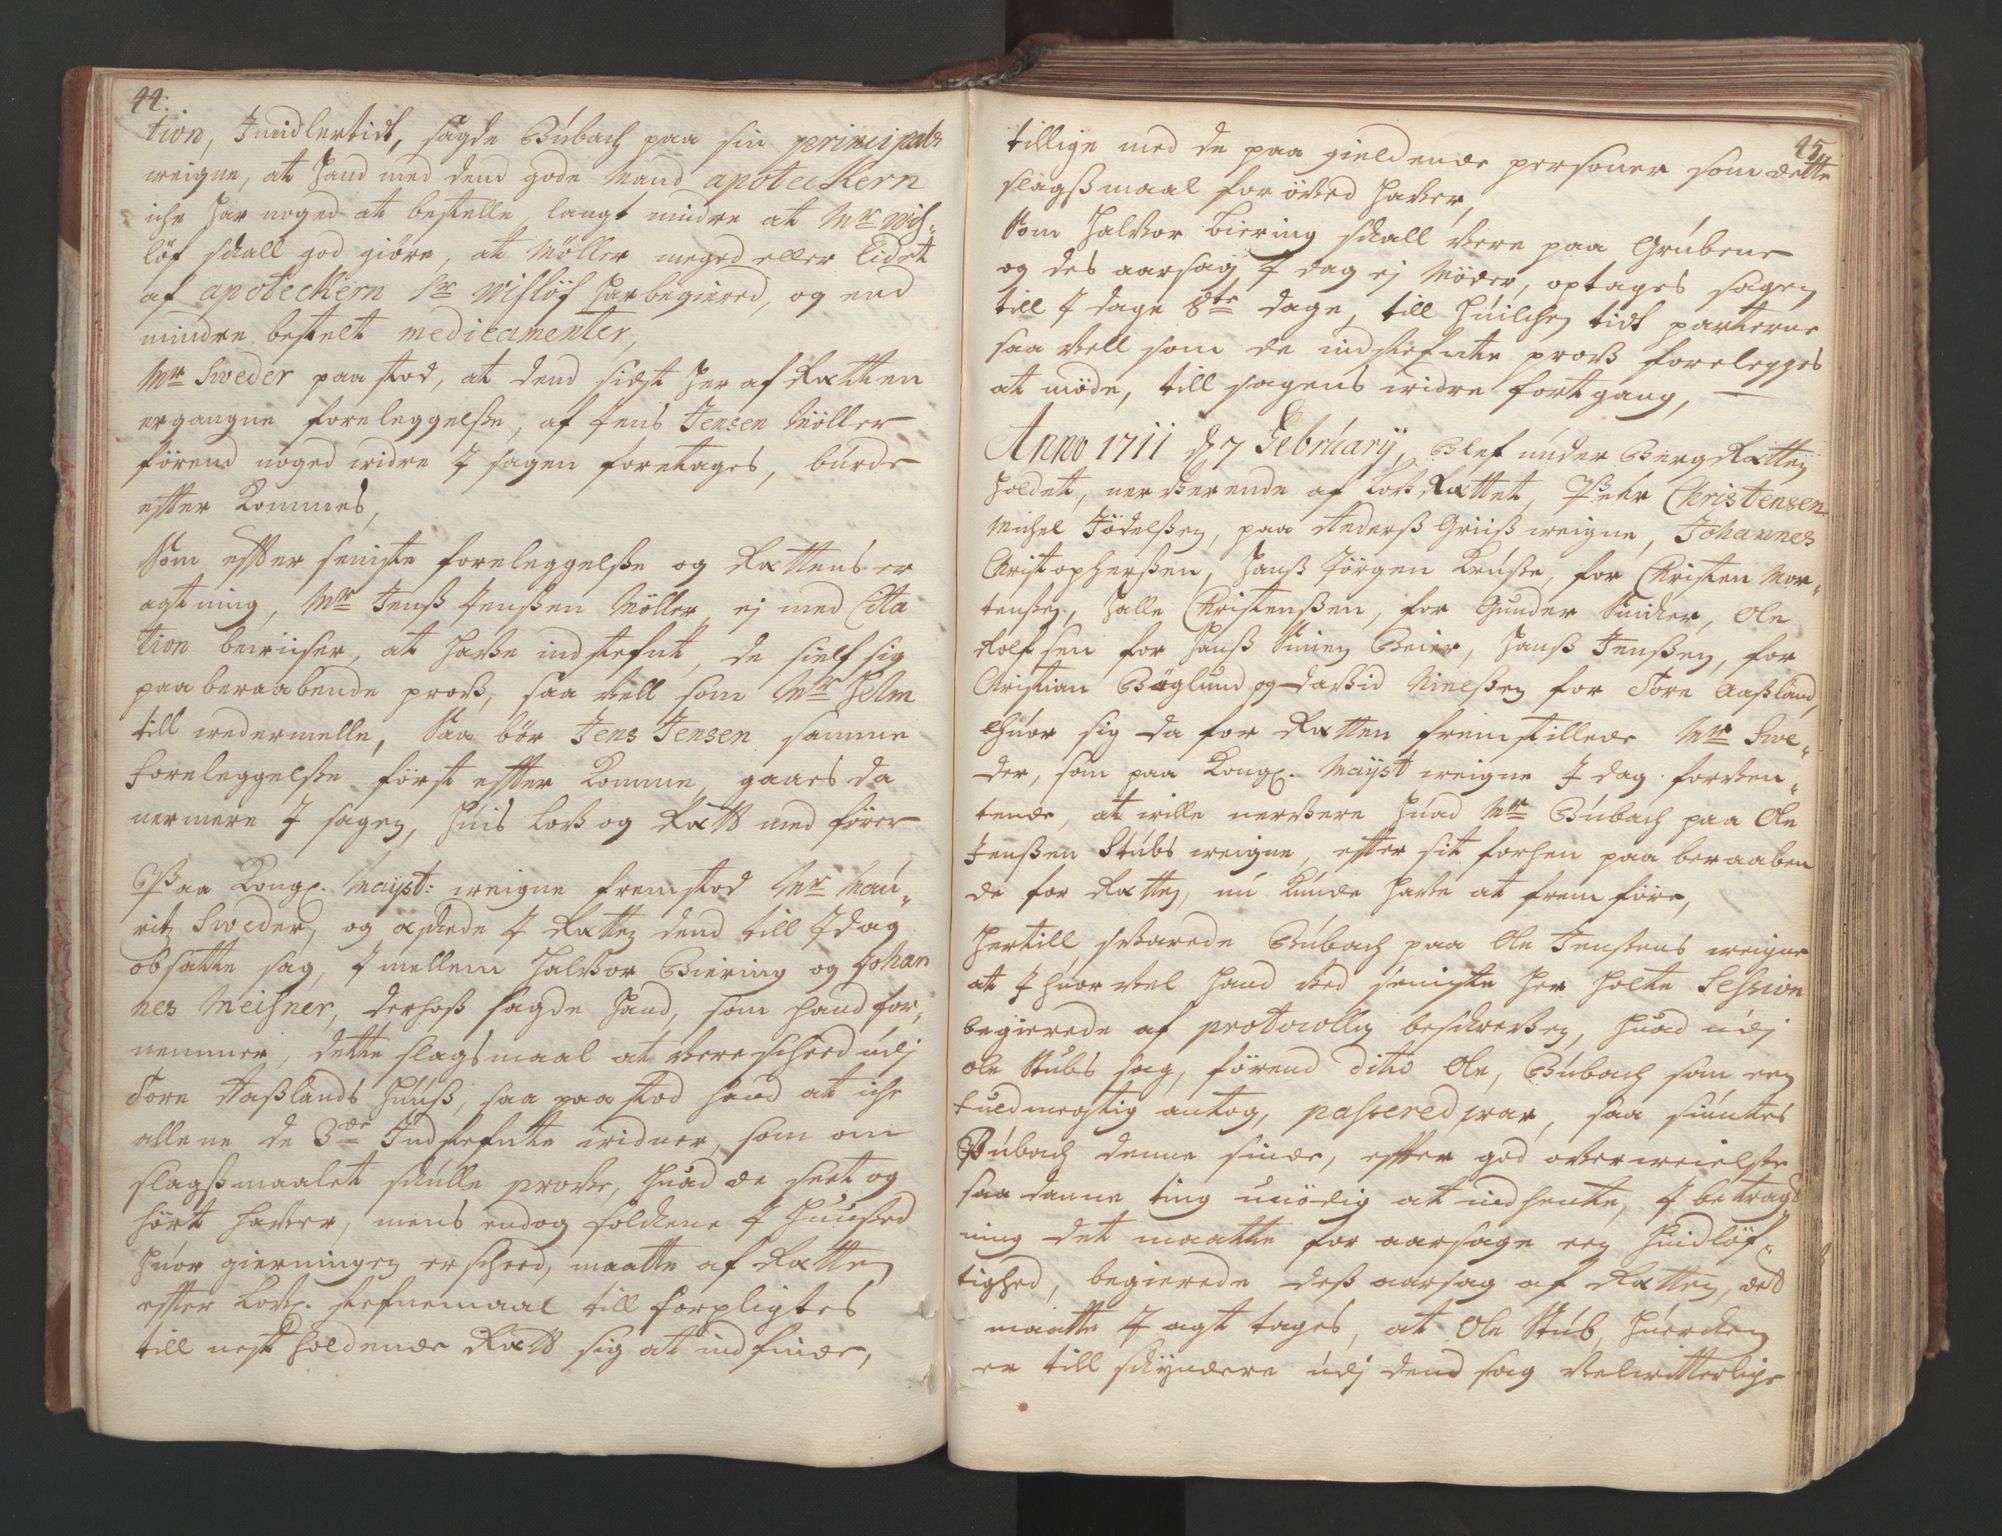 44.
tion, Imidlertidt, sagde Búbach paa sin principals
weigne, at hand med dend gode Mand apoteckern
iche har noged at bestelle, langt mindre at Mr Wis„
löf schall god giöre, at Möller meged eller lidet
af apoteckern Sr Wislöf har begiered, og end
mindre bestelt medicamenter,
Mr Sweder paa stod, at dend sidst her af Rætten
ergangne foreleggelsse, af Jens Jensen Möller
förend noged widre I sagen foretages, burde
efter kommes,
Som effter seniste foreleggelsse og Rættens er
agtning, Mr Jenss Jenssen Möller, ej med Cita
tion beviiser, at hafve indstefnt, de sielf sig
paaberaabende prof, saa vell som Mr Holm
till wedermelle, Saa bör Jens Jensen samme
foreleggelsse först effter komme, gaaes da
nermere I sagen, huis Lov og Rætt med förer
Paa Kongl. Mayst: weigne fremstod Mr Mau„
ritz Sweder, og æskede I Rætten dend till I dag
obsatte sag, I mellem Halvor Biering og Johan
nes Meisner, derhoss sagde hand, som hand for„
nemmer, dette slagsmaal at vere scheed udj
Tore Aasslands Huuss, saa paastod hand at iche
allene de 3de Indstefnte widner, som om
slagssmaalet schulle prove, huad de seet og
hört haver, mens endog folchene I Huused
huor gierningen er scheed, maatte af Rætten
effter Lovl. stefnemaal till forpligtes
till nest holdende Rætt sig at indfinde,
45
tillige med de paa gieldende personer som dette
slagssmaal foröved haver,
Som Halvor Biering schall vere paa Grúbene
og des aarsag I dag ej Möder, optages sagen
till I dage 8te dage, till huilchen tidt parterne
saa vell som de indstefnte prov forelegges
at möde, till sagens widre fortgang,
Anno 1711 d 7 Februarij, Blef under BergRætten
holdet, nerverende af LovRættet, Peder Christensen
Michel Jödelssen, paa Anderss Griiss weigne, Johannes
Christopherssen, Hanss Jörgen Krusse, for Christen Mor„
tenssen, Halle Christenssen, for Gunder Smiker, Ole
Rolfsen for Hanss Simen Beier, Hanss Jenssen, for
Christian Böglund og David Nielssen for Tore Aassland,
Huor sig da for Rætten fremstillede Mr Swe„
der, som paa Kongl. Mayst weigne I dag forven„
tende, at wille nervere huad Mr Búbach paa Ole
Jenssen Stubs weigne, effter sit forhen paa beraaben
de for Rætten, nú kunde have at frem före,
Hertill svarede Búbach paa Ole Jenssens weigne
at I huor vel hand ved seniste her holte Session
begierede af protocollen beskreven, huad udj
Ole Stubs sag, förend ditto Ole, Búbach som een
fuldmegtig antog, passered war, saa siuntes
Búbach denne sinde, effter god overweielsse
saa danne ting unödig at indhente, I betragt
ning det maatte for aarsage een Huidlöf„
tighed, begierede dess aarsag af Rætten, det
maatte I agt tages, at Ole Stúb, huerchen
er till skyndere udj dend sag velwitterlige